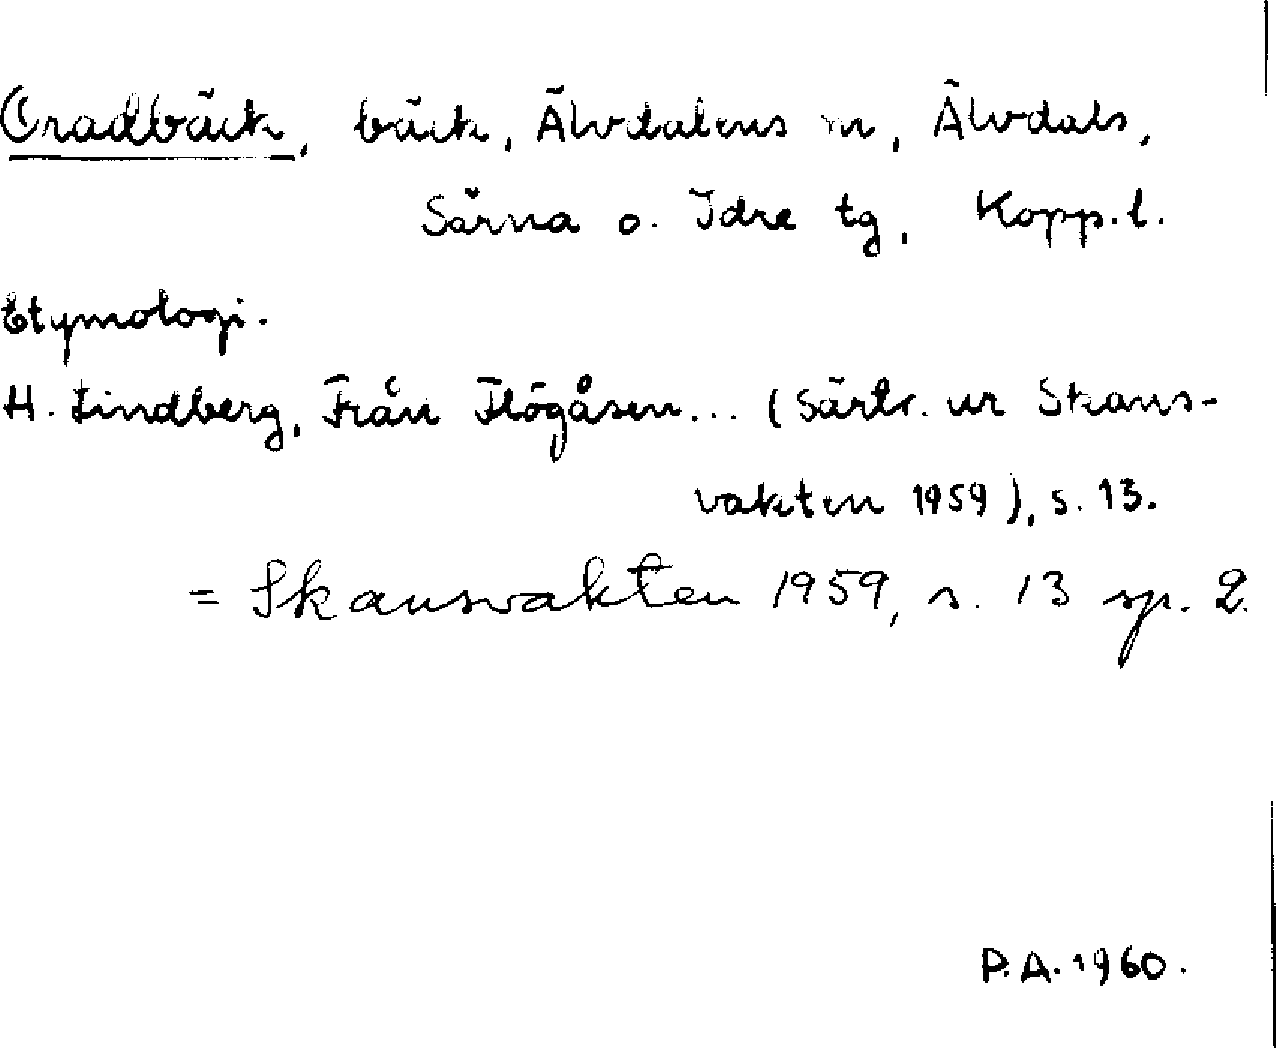 Oradbäck, bäck, Älvdalens sn, Älvdals,
Särna o. Idre tg, Kopp.l.
Etymologi.
H. Lindberg, Från Flögåsen... (Särtr. ur Skans-
vakten 1959), s. 13.
= Skansvakten 1959, s. 13 sp. 2.
P.A. 1960.